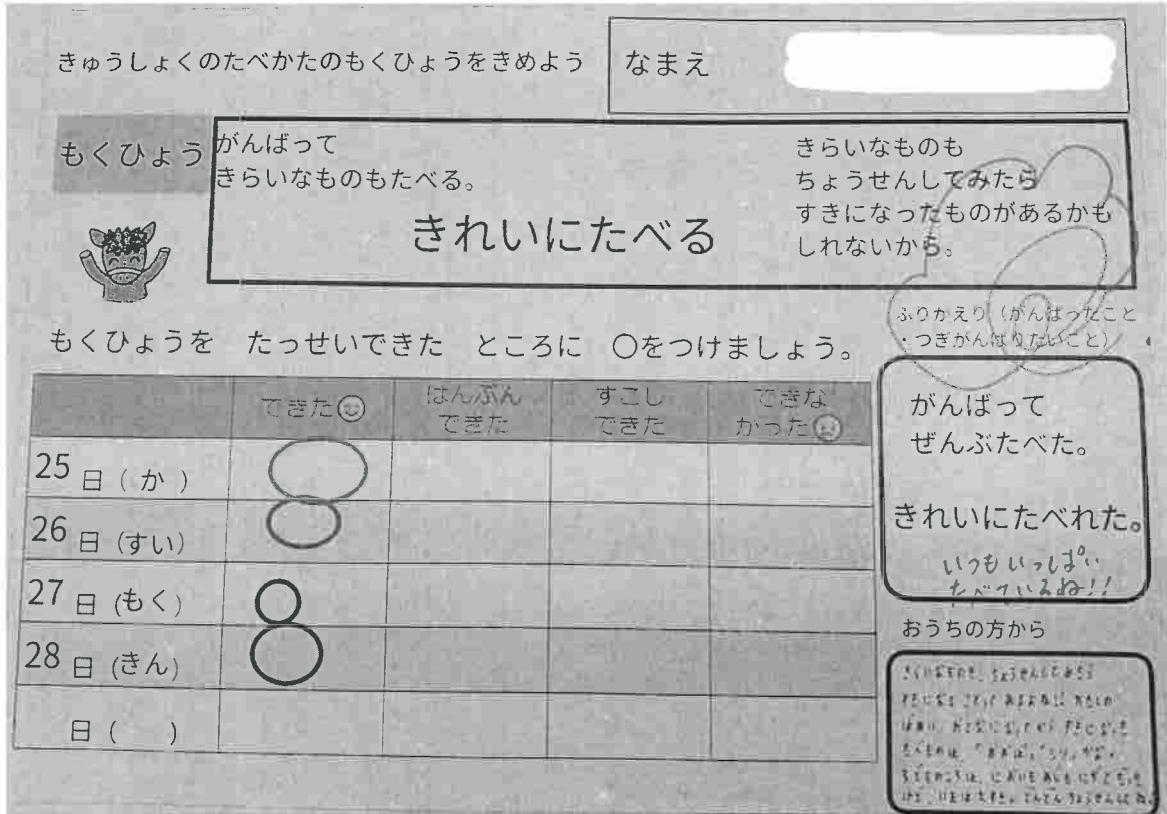 きゅうしょくのたべかたのもくひょうをきめよう
なまえ
もくひょう
がんばって
きらいなものもたべる。
きれいにたべる
きらいなものも
ちょうせんしてみたら
すきになったものがあるかも
しれないから。
もくひょうを たっせいできた ところに ○をつけましょう。
できた
はんぶん
できた
すこし
できた
できな
かった
25日(か)
26日(すい)
27日(もく)
28日(きん)
日( )
ふりかえり(がんばったこと
・つぎがんばりたいこと)
がんばって
ぜんぶたべた。
きれいにたべれた。
いつもいっぱい
たべているね!!
おうちの方から
きらいなものも、ちょうせんしてみたら
すきになることってあるよね!!
おとなになってから すきになった
たべものは、
いまは